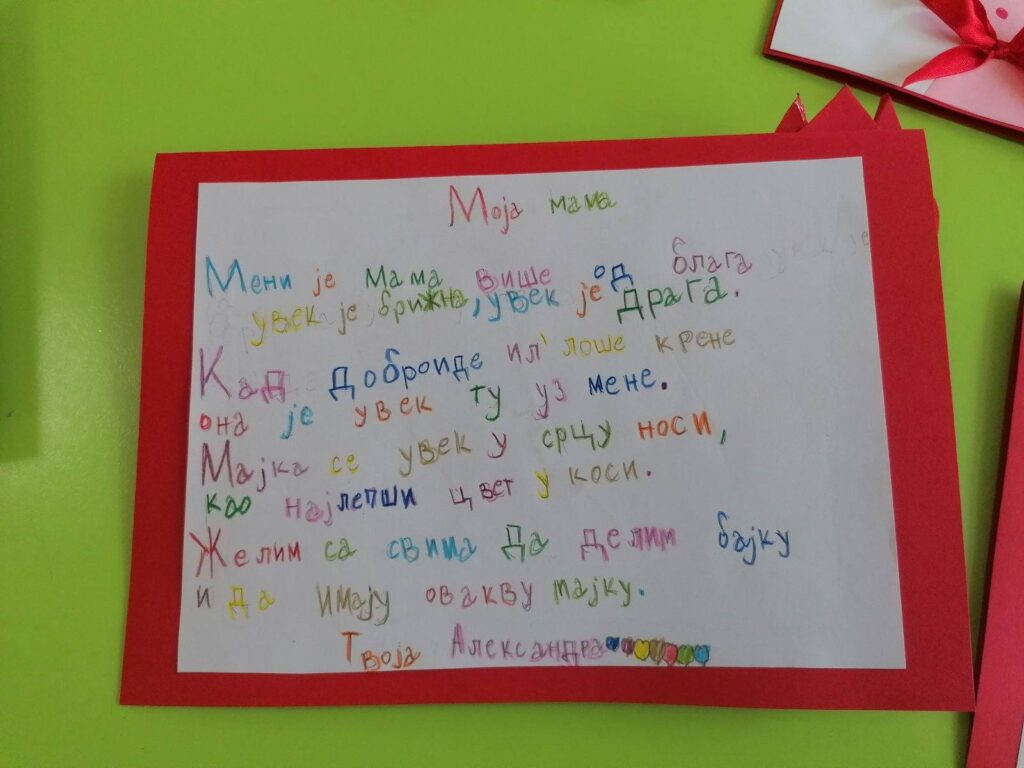 Моја мама
Мени је мама више од блага
увек је брижна, увек је драга.
Кад доброиде ил' лоше крене
она је увек ту уз мене.
Мајка се увек у срцу носи,
као најлепши цвет у коси.
Желим са свима да делим бајку
и да имају овакву мајку.
Твоја Александра